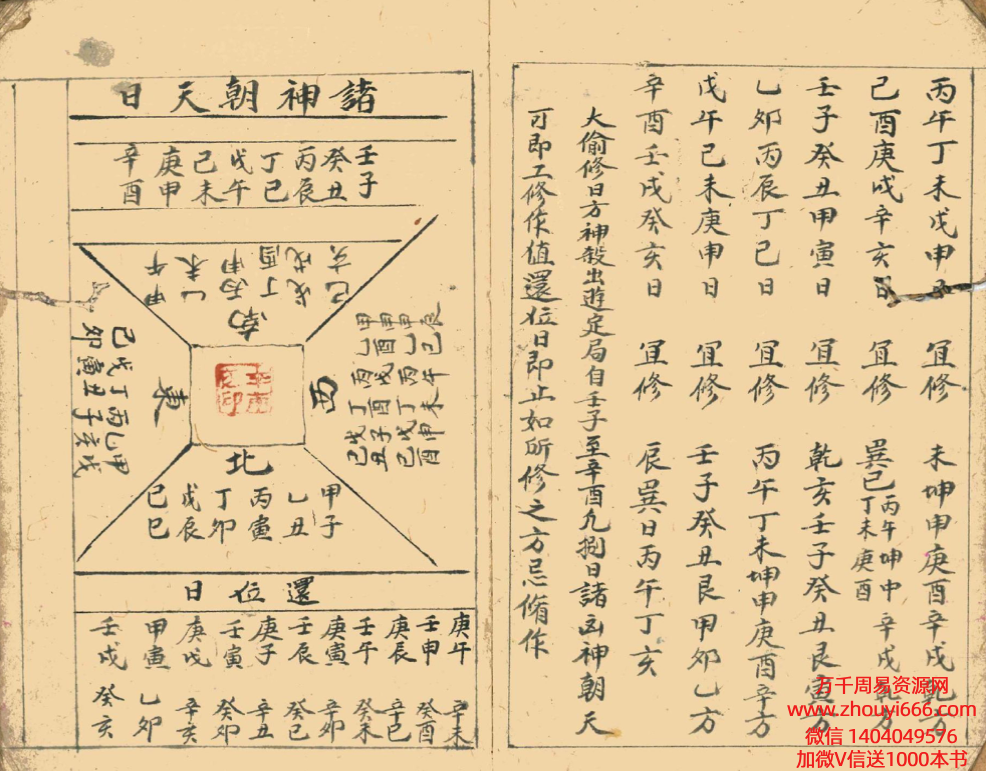 丙午丁未戊申日 宜修 未坤申庚酉辛戌乾方
己酉庚戌辛亥日 宜修 巽巳丙午丁未坤申庚酉辛戌乾方
壬子癸丑甲寅日 宜修 乾亥壬子癸丑艮寅方
乙夘丙辰丁巳日 宜修 丙午丁未坤申庚酉辛方
戊午己未庚申日 宜修 壬子癸丑艮甲夘乙方
辛酉壬戌癸亥日 宜修 辰巽日丙午丁亥
大偷修日方神殺出遊定局自壬子至辛酉凡捌日諸凶神朝天
可即工修作值還位日即止如所修之方忌脩作
諸神朝天日
壬子 癸丑 丙辰 丁巳 戊午 己未 庚申 辛酉
甲午 乙未 丙申 丁酉 戊戌 己亥
南
甲辰 乙巳 丙午 丁未 戊申 己酉
西
東
甲戌 乙亥 丙子 丁丑 戊寅 己夘
北
甲子 乙丑 丙寅 丁夘 戊辰 己巳
還位日
庚午 辛未
壬申 癸酉
庚辰 辛巳
壬午 癸未
庚寅 辛夘
壬辰 癸巳
庚子 辛丑
壬寅 癸夘
庚戌 辛亥
甲寅 乙夘
壬戌 癸亥
万千周易资源网
www.zhouyi666.com
微信 1404049576
加微V信送1000本书